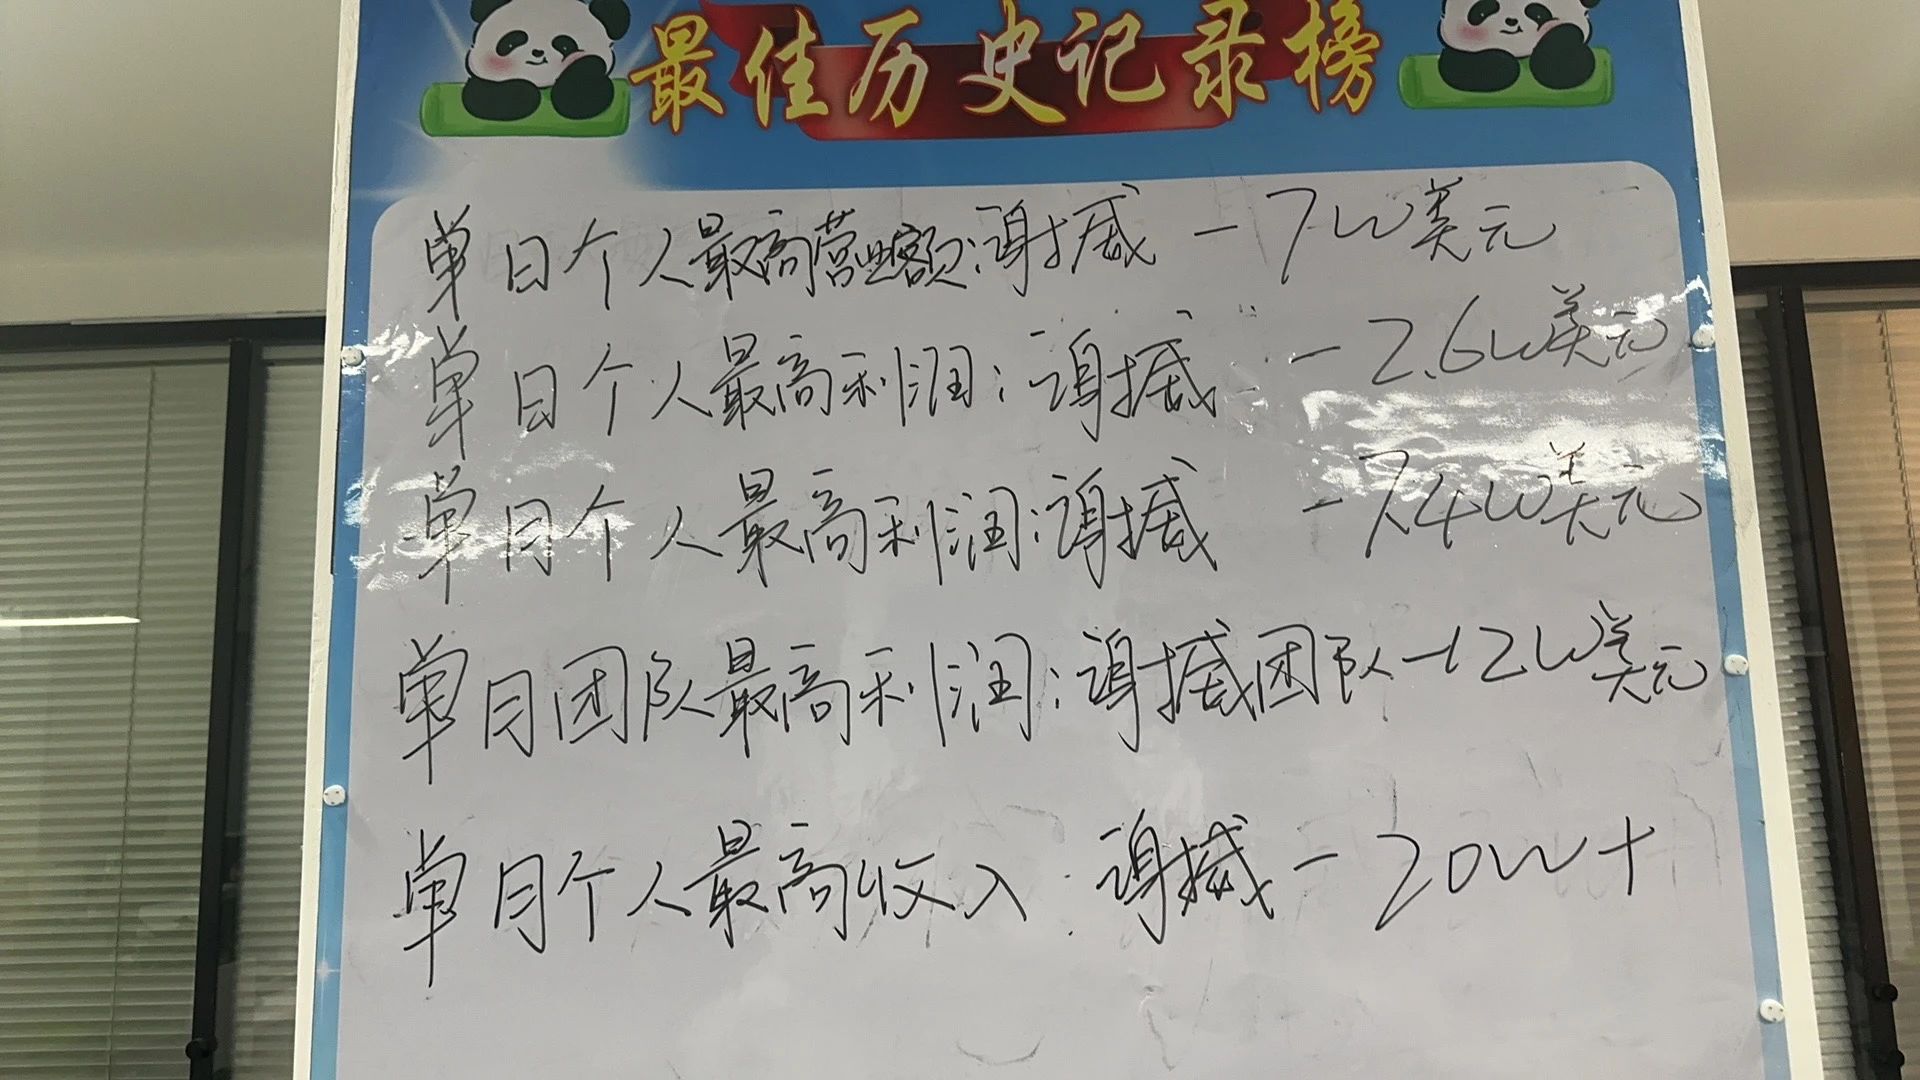 最佳历史记录榜
单日个人最高营业额:谢撼 - 7W美元
单日个人最高利润:谢撼 - 2.6W美元
单月个人最高利润:谢撼 - 7.4W美元
单月团队最高利润:谢撼团队-12W美元
单月个人最高收入:谢撼 - 20W+